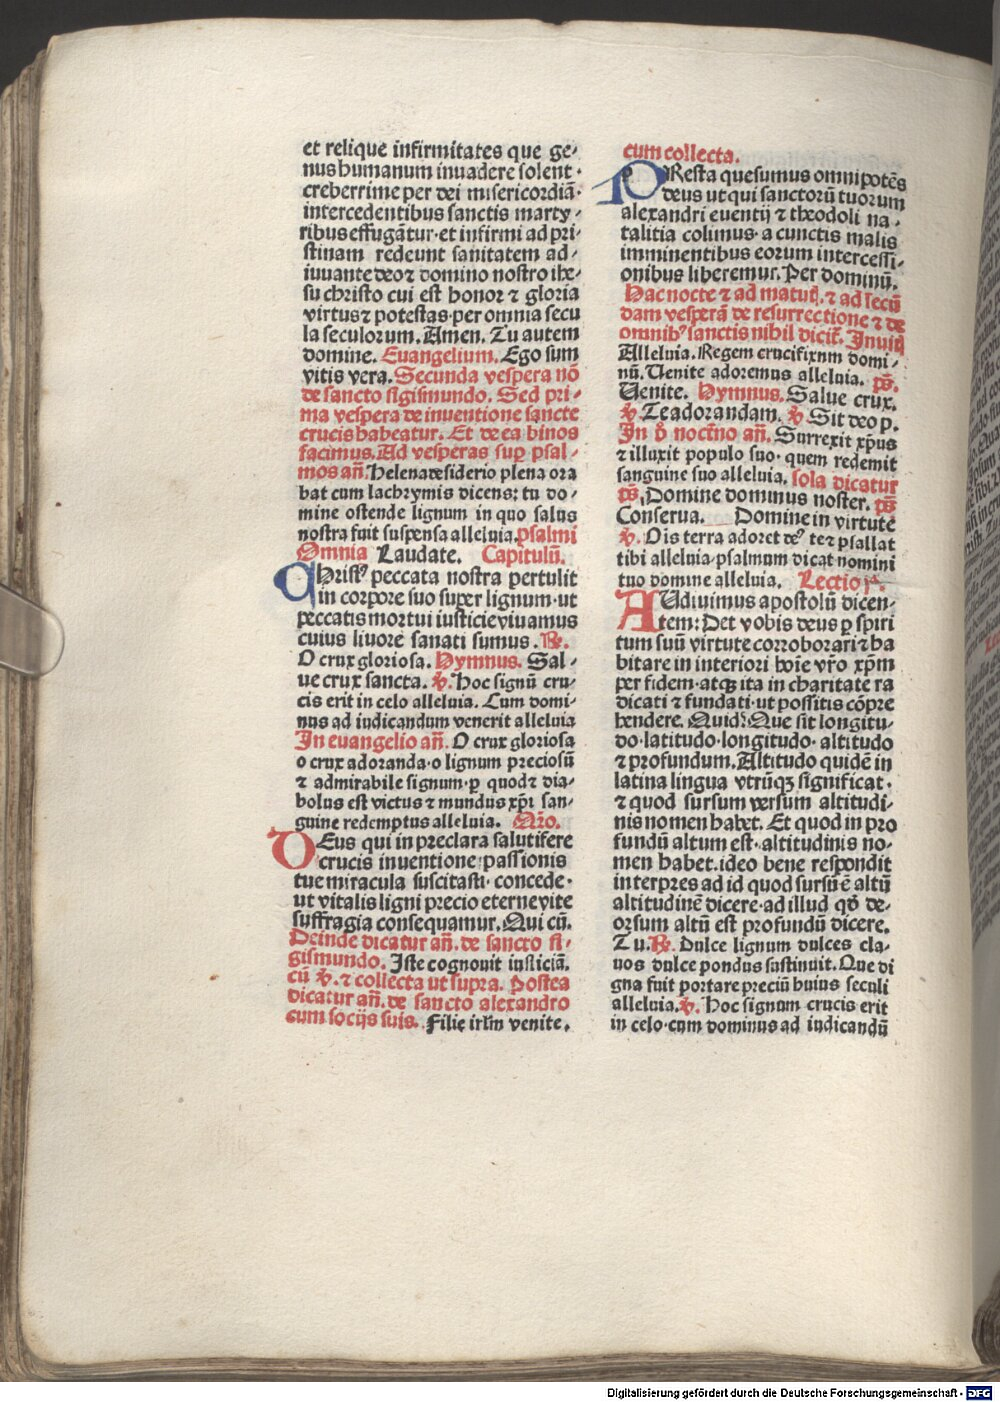 et relique infirmitates que ge-
nus humanum inuadere solent ·
creberrime per dei misericordiā·
intercedentibus sanctis marty-
ribus effugātur· et infirmi ad pri-
stinam redeunt sanitatem ad-
iuuante deo ⁊ domino nostro ihe-
su christo cui est honor ⁊ gloria
virtus ⁊ potestas· per omnia secu
la seculorum. Amen. Tu autem
domine. Euangelium. Ego sum
vitis vera. Secunda vespera nō
de sancto sigismundo. Sed pri-
ma vespera de inuentione sancte
crucis habeatur. Et de ea binos
facimus. Ad vesperas suꝑ psal-
mos añ. Helena desiderio plena ora
bat cum lachrymis dicens: tu do-
mine ostende lignum in quo salus
nostra fuit suspensa alleluia. psalmi
Omnia Laudate. Capitulū.
CHristꝰ peccata nostra pertulit
in corpore suo super lignum· ut
peccatis mortui iusticie viuamus
cuius liuore sanati sumus. ℟.
O crux gloriosa. Hymnus. Sal-
ue crux sancta. ℣. Hoc signū cru-
cis erit in celo alleluia. Cum domi-
nus ad iudicandum venerit alleluia
In euangelio añ. O crux gloriosa
o crux adoranda· o lignum preciosū
⁊ admirabile signum· ꝑ quod ⁊ dia-
bolus est victus ⁊ mundus xp̄i san-
guine redemptus alleluia. Orō.
DEus qui in preclara salutifere
crucis inuentione passionis
tue miracula suscitasti· concede·
ut vitalis ligni precio eterne vite
suffragia consequamur. Qui cū.
Deinde dicatur añ. de sancto si-
gismundo. Iste cognouit iusticiā.
cū ℣. ⁊ collecta ut supra. Postea
dicatur añ. de sancto alexandro
cum socijs suis. Filie irl̄m venite.
cum collecta.
PResta quesumus omnipotēs
deus ut qui sanctorū tuorum
alexandri euentij ⁊ theodoli na-
talitia colimus· a cunctis malis
imminentibus eorum intercessi-
onibus liberemur. Per dominū.
Hac nocte ⁊ ad matuꝭ. ⁊ ad secū
dam vesperā de resurrectione ⁊ de
omnibꝰ sanctis nihil dicit᷑. Inuiꝭ
Alleluia. Regem crucifixum domi-
nū. Uenite adoremus alleluia. pꝭ.
Uenite. Hymnus. Salue crux.
℣. Te adorandam. ℣. Sit deo p.
In p̄ noct̄no añ. Surrexit xp̄us
⁊ illuxit populo suo· quem redemit
sanguine suo alleluia. sola dicatur
pꝭ. Domine dominus noster. pꝭ
Conserua. Domine in virtute
℣. Oīs terra adoret deꝰ te ⁊ psallat
tibi alleluia· psalmum dicat nomini
tuo domine alleluia. Lectio jᵃ.
AUdiuimus apostolū dicen-
tem: Det vobis deus ꝑ spiri
tum suū virtute corroborari ⁊ ha
bitare in interiori hoīe vr̄o xp̄m
per fidem· atqꝫ ita in charitate ra
dicati ⁊ fundati· ut possitis cōpre
hendere. Quid? Que sit longitu-
do· latitudo· longitudo· altitudo
⁊ profundum. Altitudo quidē in
latina lingua vtrūqꝫ significat·
⁊ quod sursum versum altitudi-
nis nomen habet. Et quod in pro
fundū altum est· altitudinis no-
men habet. ideo bene respondit
interpres ad id quod sursū ē altū
altitudinē dicere· ad illud qđ de-
orsum altū est profundū dicere.
Tu. ℟. Dulce lignum dulces cla-
uos dulce pondus sustinuit. Que di
gna fuit portare preciū huius seculi
alleluia. ℣. Hoc signum crucis erit
in celo· cum dominus ad iudicandū
Digitalisierung gefördert durch die Deutsche Forschungsgemeinschaft - DFG